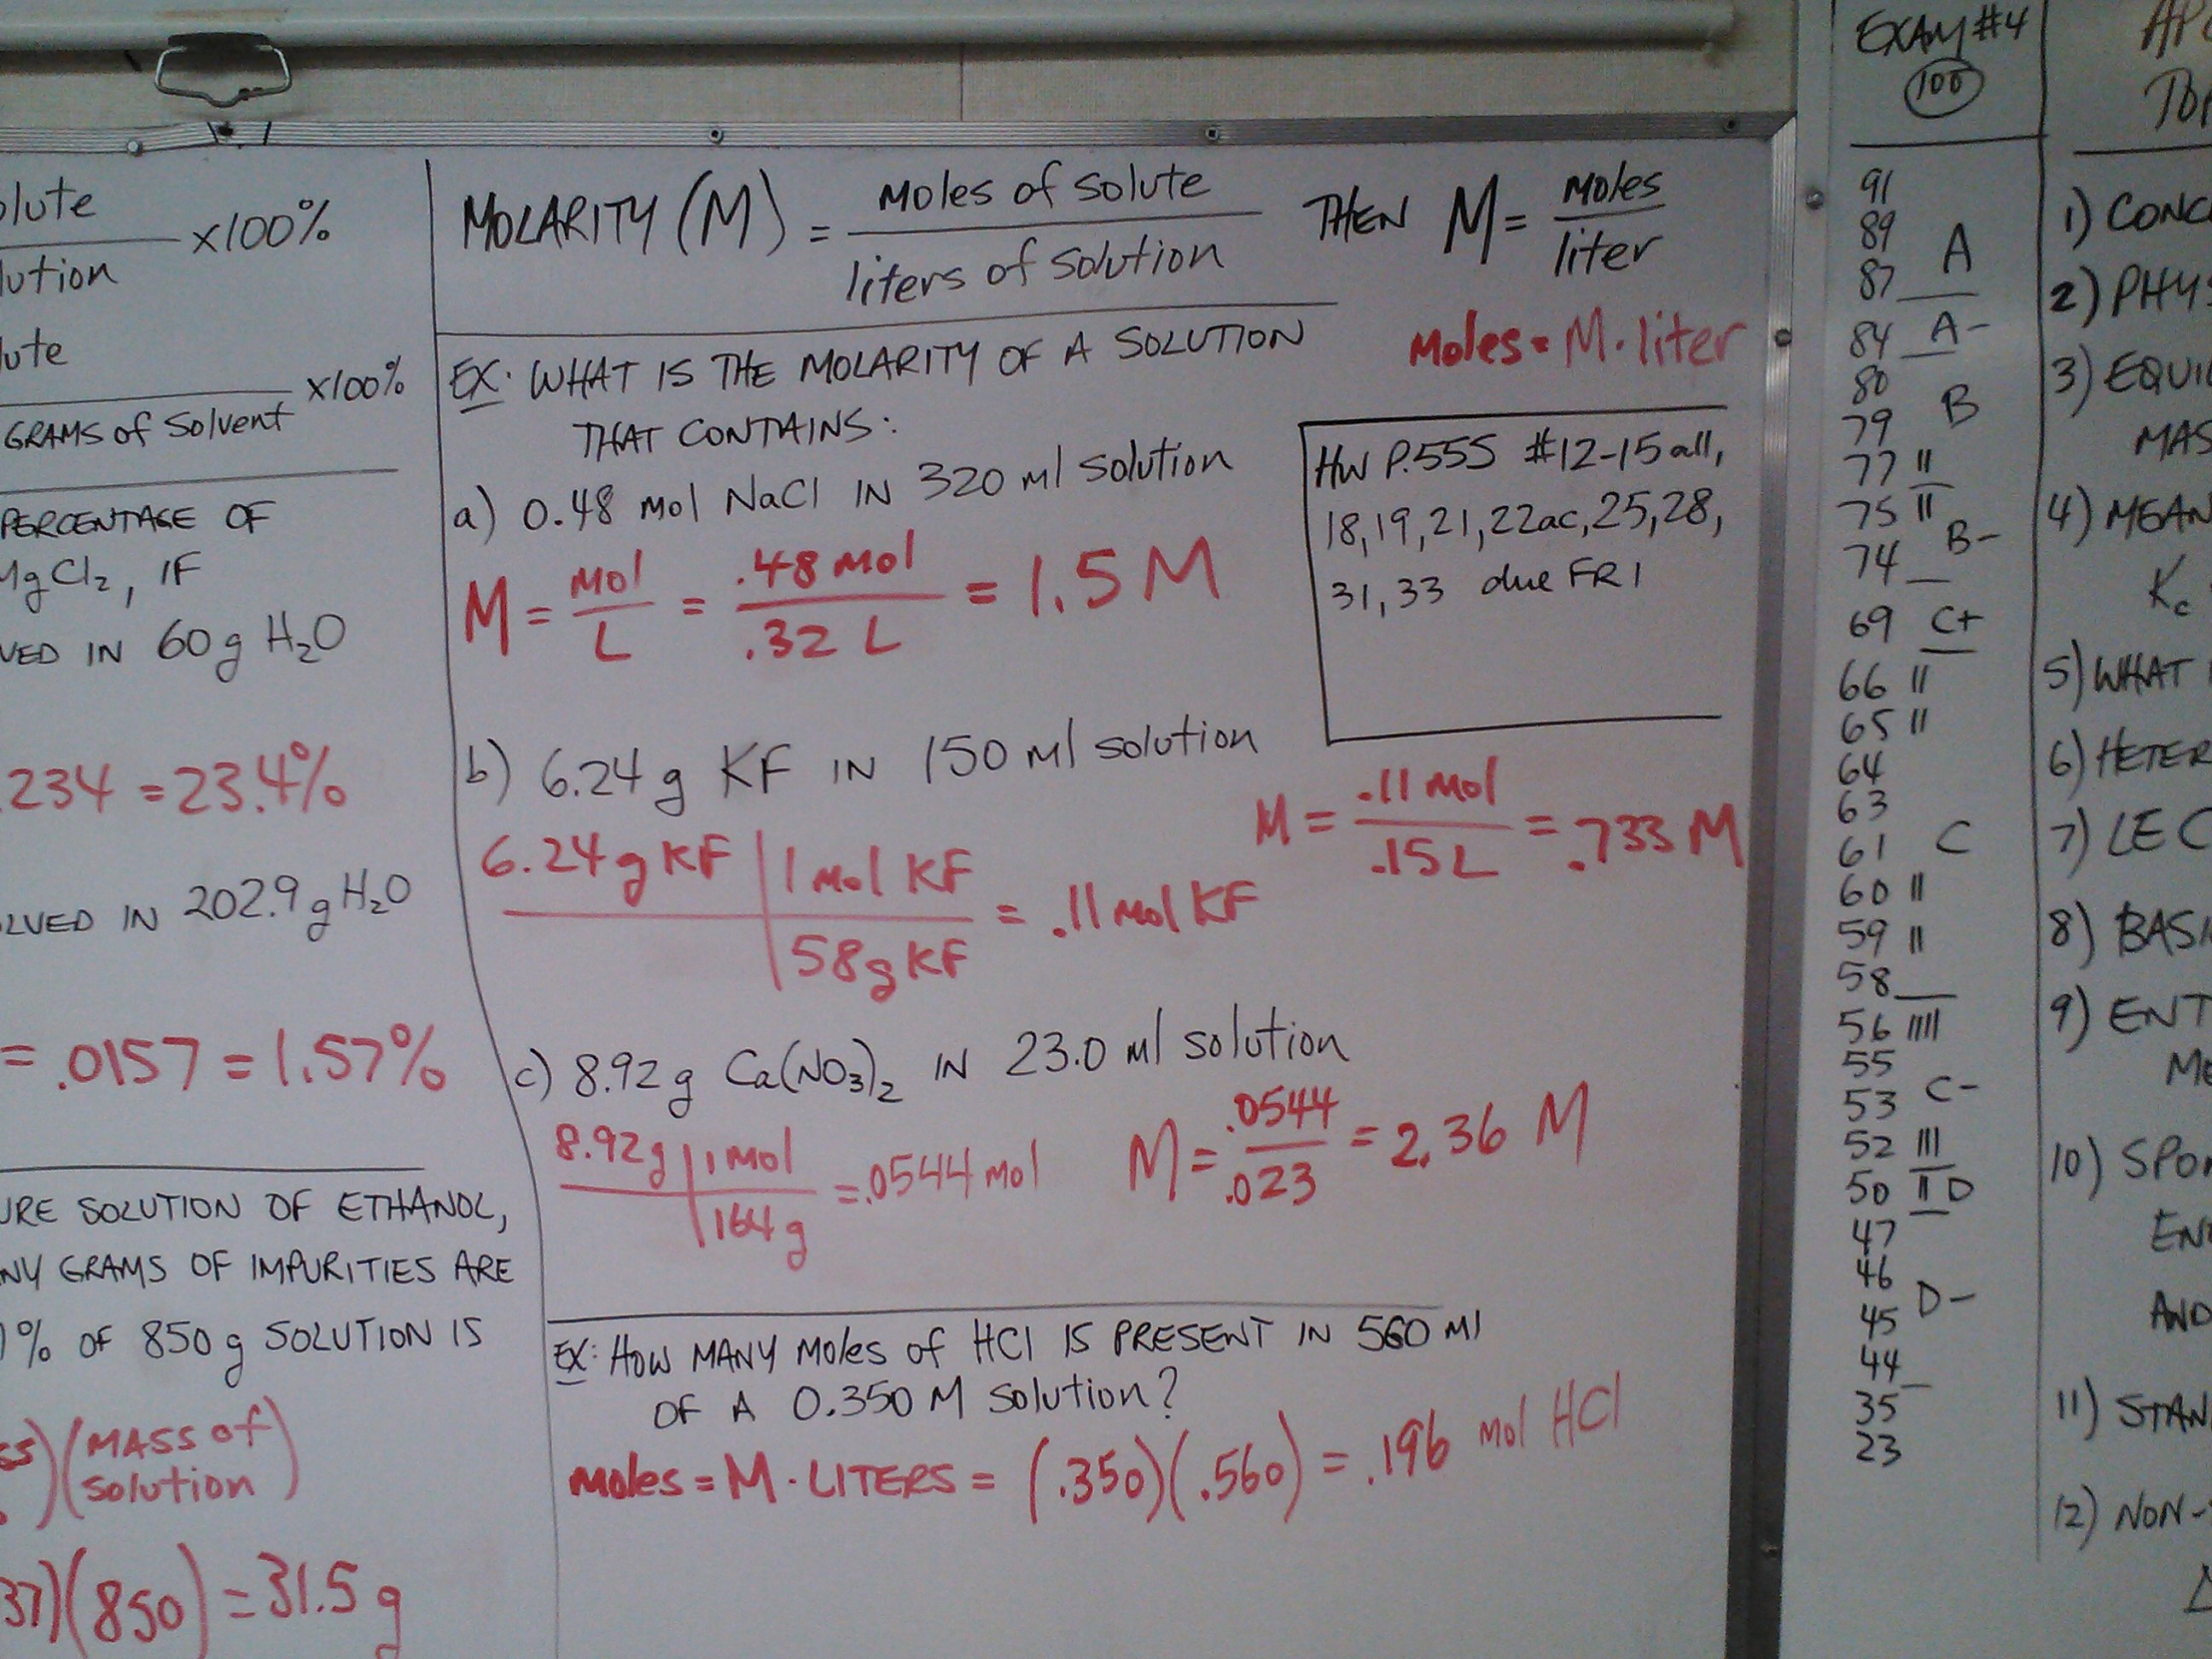 olute
lution
x100%
lute
GRAMS of Solvent
x100%
PERCENTAGE OF
MgCl₂, IF
VED IN 60g H₂O
.234 = 23.4%
OLVED IN 202.9g H₂O
= .0157 = 1.57%
URE SOLUTION OF ETHANOL,
NY GRAMS OF IMPURITIES ARE
% OF 850g SOLUTION IS
(MASS of
solution)
37)(850) = 31.5 g
MOLARITY (M) = moles of solute / liters of solution THEN M = moles / liter
moles = M·liter
EX: WHAT IS THE MOLARITY OF A SOLUTION
THAT CONTAINS:
a) 0.48 mol NaCl IN 320 ml solution
M = mol / L = .48 mol / .32 L = 1.5 M
HW P.555 #12-15 all,
18,19,21,22ac,25,28,
31,33 due FRI
b) 6.24g KF IN 150 ml solution
6.24g KF | 1 mol KF / 58g KF = .11 mol KF
M = .11 mol / .15 L = .733 M
c) 8.92g Ca(NO₃)₂ IN 23.0 ml solution
8.92g | 1 mol / 164g = .0544 mol
M = .0544 / .023 = 2.36 M
EX: HOW MANY MOLES OF HCl IS PRESENT IN 560 ml
OF A 0.350 M solution?
moles = M · LITERS = (.350)(.560) = .196 mol HCl
EXAM #4
100
91
89 A
87
84 A-
80
79 B
77 ||
75 ||
74 B-
69 C+
66 ||
65 ||
64
63
61 C
60 ||
59 ||
58
56 ||||
55
53 C-
52 |||
50 || D
47
46
45 D-
44
35
23
1) CONC
2) PHYS
3) EQUIL
MAS
4) MEAN
Kc
5) WHAT
6) HETER
7) LE C
8) BASI
9) ENT
ME
10) SPON
ENE
AND
11) STAN
12) NON-